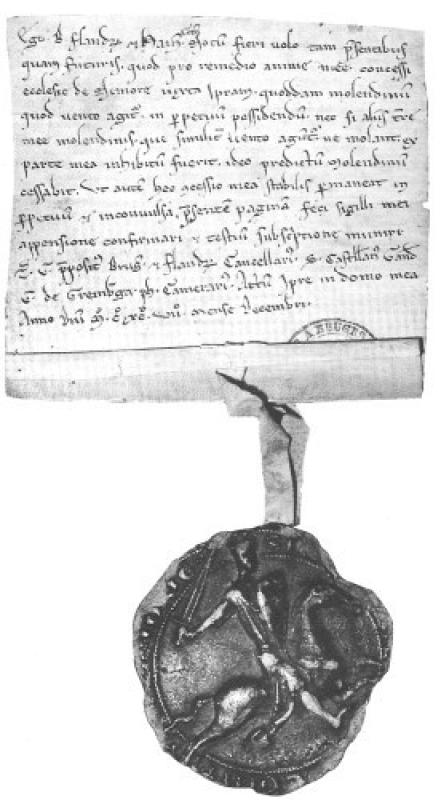 Ego B̄ flandr̄ ⁊ hain̄ com̄ notū fieri volo tam p̄sentibus
quam futuris. quod pro remedio anime mee concessi
ecclesie de iuxta Ipram. quoddam molendinū
quod vento agit᷑. in p̄petuū possidendū. nec si aliis t᷑re
mee molendinis. que similit᷑ vento agūt᷑. ne molant. ex
parte mea inhibitū fuerit. ideo predictū molendinū
cessabit. Ut autē hoc mea stabilis p̄maneat in
p̄petuū ⁊ inconvulsa. p̄sentē paginā feci sigilli mei
appensione confirmari ⁊ testiū subsc̄ptione muniri
S̄. G. p̄positi Bruḡ. ⁊ flandr̄ Cancellarī. S. Castellani Gand̄
G. de ph̄. Camerarī. Actū Ipre in domo mea
Anno dn̄i M̊. C̊. XC̊. VII̊. mense decembri.